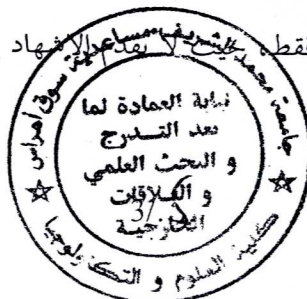 فقط حيث لا يقدم الإشهاد
جامعة محمد الشريف مساعدية سوق أهراس
نيابة العمادة لما
بعد التدرج
و البحث العلمي
و العلاقات
الخارجية
كلية العلوم و التكنولوجيا